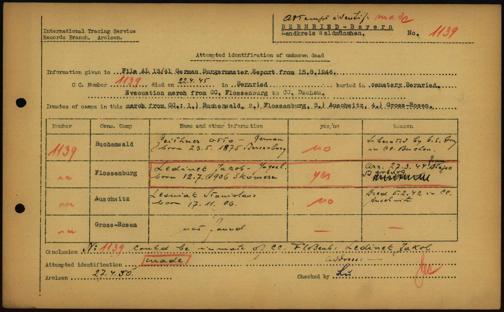 attempt identif. made
International Tracing Service
Records Branch. Arolsen.
BERNRIED - Bayern
Landkreis Waldmünchen.
No: 1139
Attempted identification of unknown dead
Information given in File AL 13/61 German Burgermaster Report from 15.8.1946.
CC Number 1139 died 22.4.45 in Bernried buried in cemetery Bernried.
Evacuation march from CC. Flossenburg to CC. Dachau.
Inmates of camps in this march from CC.: 1.) Buchenwald, 2.) Flossenburg, 3.) Auschwitz, 4.) Gross-Rosen.
Number Conc. Camp Name and other information yes/no Reason
1139 Buchenwald Otto - German no Liberated by U.S. Army
born 23.5.1875 in CC. Buchen.
Flossenburg Ledinek Jakob - yes 27.3.44
born 12.7.1906
Auschwitz Stanislaus no Died 5.2.42 in CC.
born 17.11.06. Auschwitz
Gross-Rosen not found
Conclusion No 1139 could be inmate of CC. Flossenb. Ledinek Jakob
Attempted identification made
Arolsen 27.4.50 Checked by